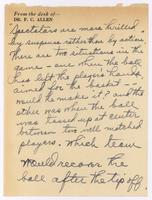 From the desk of—
DR. F. C. ALLEN
"Spectators are more thrilled
by suspense rather than by action.
There are two situations in the
game – one when the ball
has left the players hands,
aimed for the basket
would he make it? and the
other was when the ball
was tossed up at center
between two well matched
players. Which team
would recover the
ball after the tip off.